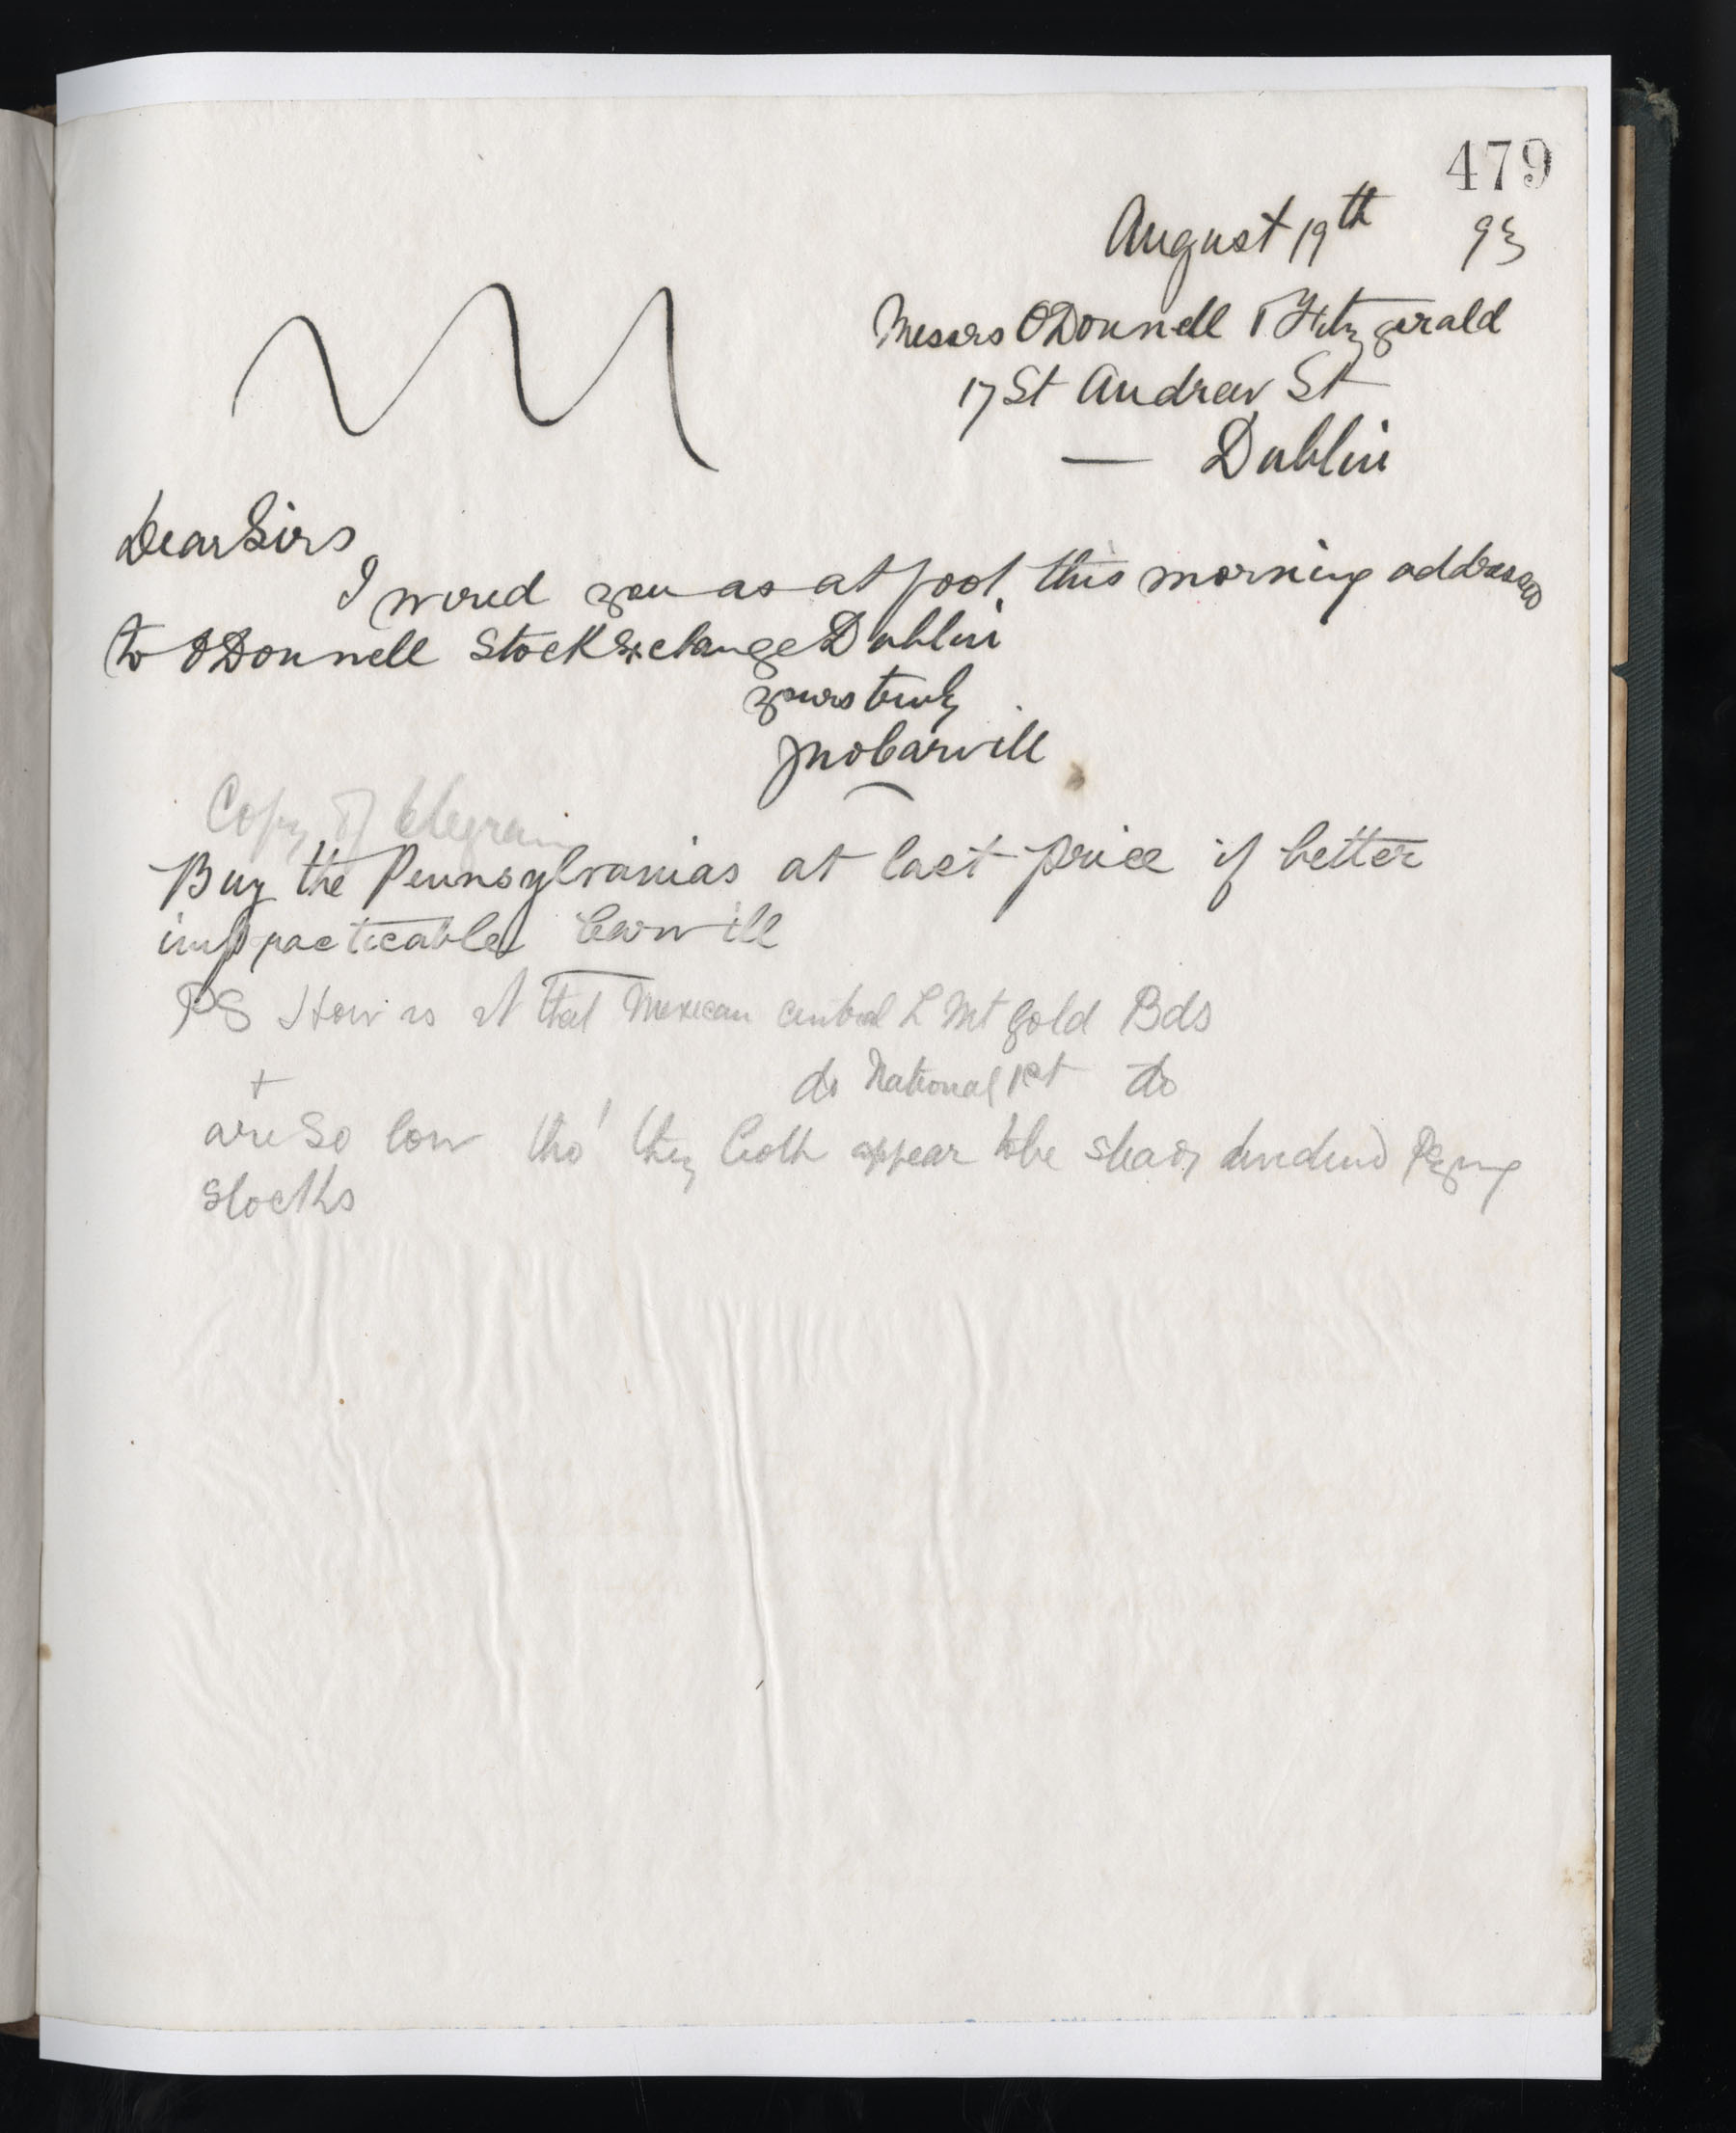 479
August 19th 93
Messrs O'Donnell & Fitzgerald
17 St Andrew St
— Dublin
Dear Sirs
I wired you as at foot this morning addressed
to O'Donnell Stock Exchange Dublin
yours truly
Jno Carvill
Copy of telegram
Buy the Pennsylvanias at last price if better
impracticable Carvill
PS How is it that Mexican central 1 Mt gold Bds
+ do National 1st do
are so low tho' they both appear to be steady dividend paying
stocks